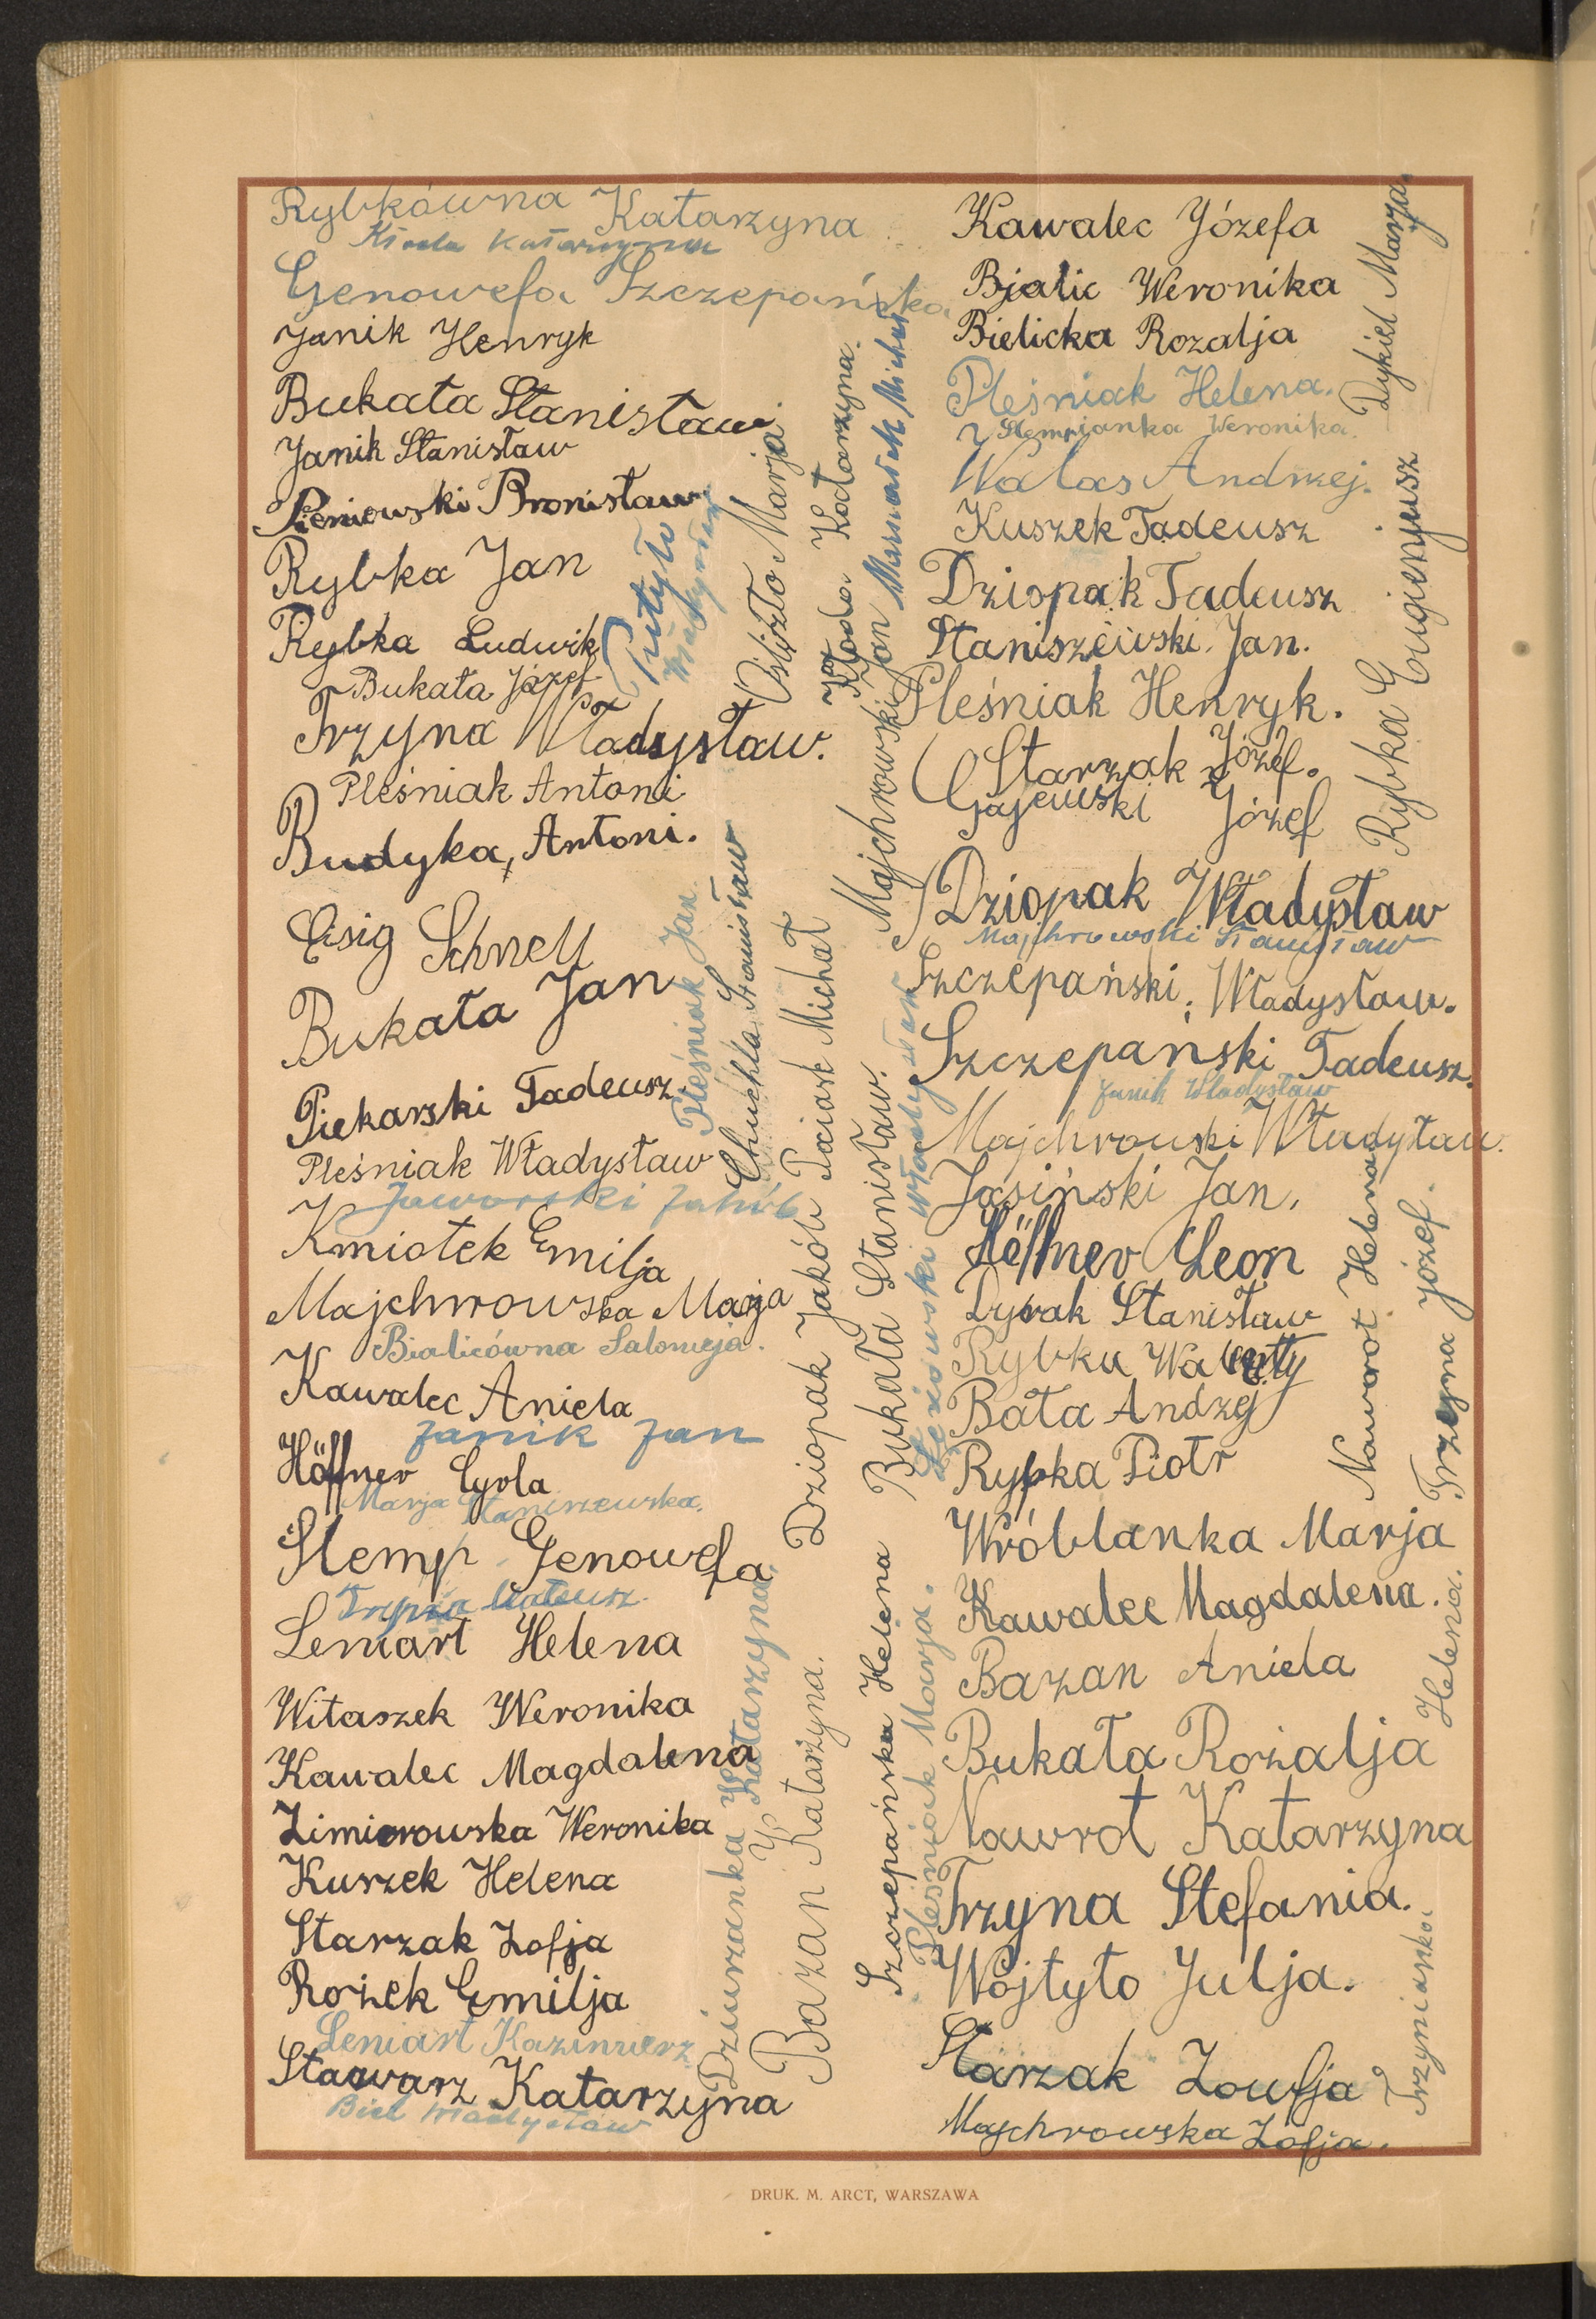 Rybkówna Katarzyna
Kłoda Katarzyna
Genowefa Szczepańska
Janik Henryk
Bukała Stanisław
Janik Stanisław
Pieniowski Bronisław
Rybka Jan
Rybka Ludwik
Bukała Józef
Trzyna Władysław.
Pleśniak Antoni
Budyka, Antoni.
Eisig Schnell
Bukała Jan
Piekarski Tadeusz.
Pleśniak Władysław
Jaworski Jakób
Kmiotek Emilja
Majchrowska Marja
Bialicówna Salomeja.
Kawalec Aniela
Janik Jan
Höffner Cyrla
Marja Staniszewska.
Stemp Genowefa
Trzyna Mateusz.
Leniart Helena
Witaszek Weronika
Kawalec Magdalena
Zimierowska Weronika
Kuszek Helena
Starzak Zofja
Rożek Emilja
Leniart Kazimierz
Stawarz Katarzyna
Biel Władysław
Pleśniak Jan.
Chuchla Stanisław
Marja
Kłoda Katarzyna.
Majchrowski Jan
Dziopak Jakób
Michał
Bukała Stanisław.
Władysław
Dziurzanka Katarzyna.
Bazan Katarzyna.
Szczepańska Helena
Pleśniak Marja.
Kawalec Józefa
Bialic Weronika
Bielicka Rozalja
Pleśniak Helena.
Stempianka Weronika.
Walas Andrzej.
Kuszek Tadeusz
Dziopak Tadeusz
Staniszewski. Jan.
Pleśniak Henryk.
Starzak Józef.
Gajewski Józef
Dziopak Władysław
Majchrowski Stanisław
Szczepański, Władysław.
Szczepański Tadeusz.
Janik Władysław
Majchrowski Władysław.
Jasiński Jan.
Höffner Leon
Dyrak Stanisław
Rybka Walenty
Bała Andzej
Rybka Piotr
Wróblanka Marja
Kawalec Magdalena.
Bazan Aniela
Bukała Rozalja
Nawrot Katarzyna
Trzyna Stefania.
Wojtyło Julja.
Starzak Zowfja
Majchrowska Zofja.
Dykiel Marza.
Rybka Eugienjusz
Naworot Helena
Trzeyna józef.
Trzynianka Helena.
DRUK. M. ARCT, WARSZAWA